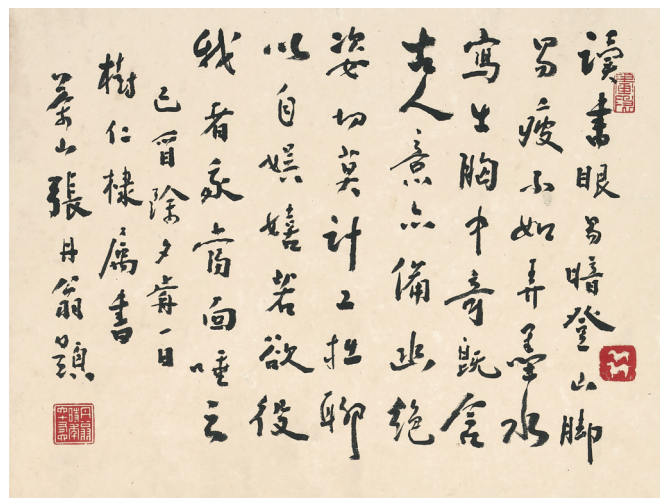 讀書眼易暗登山腳
易疲不如弄墨水
寫出胸中奇既含
古人意亦備幽絕
姿切莫計工拙聊
以自娛嬉若欲役
我者我當面唾之
己酉除夕前一日
樹仁棣屬書
山張丹翁